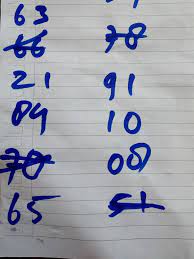 63
66 78
21 91
89 10
70 08
65 51